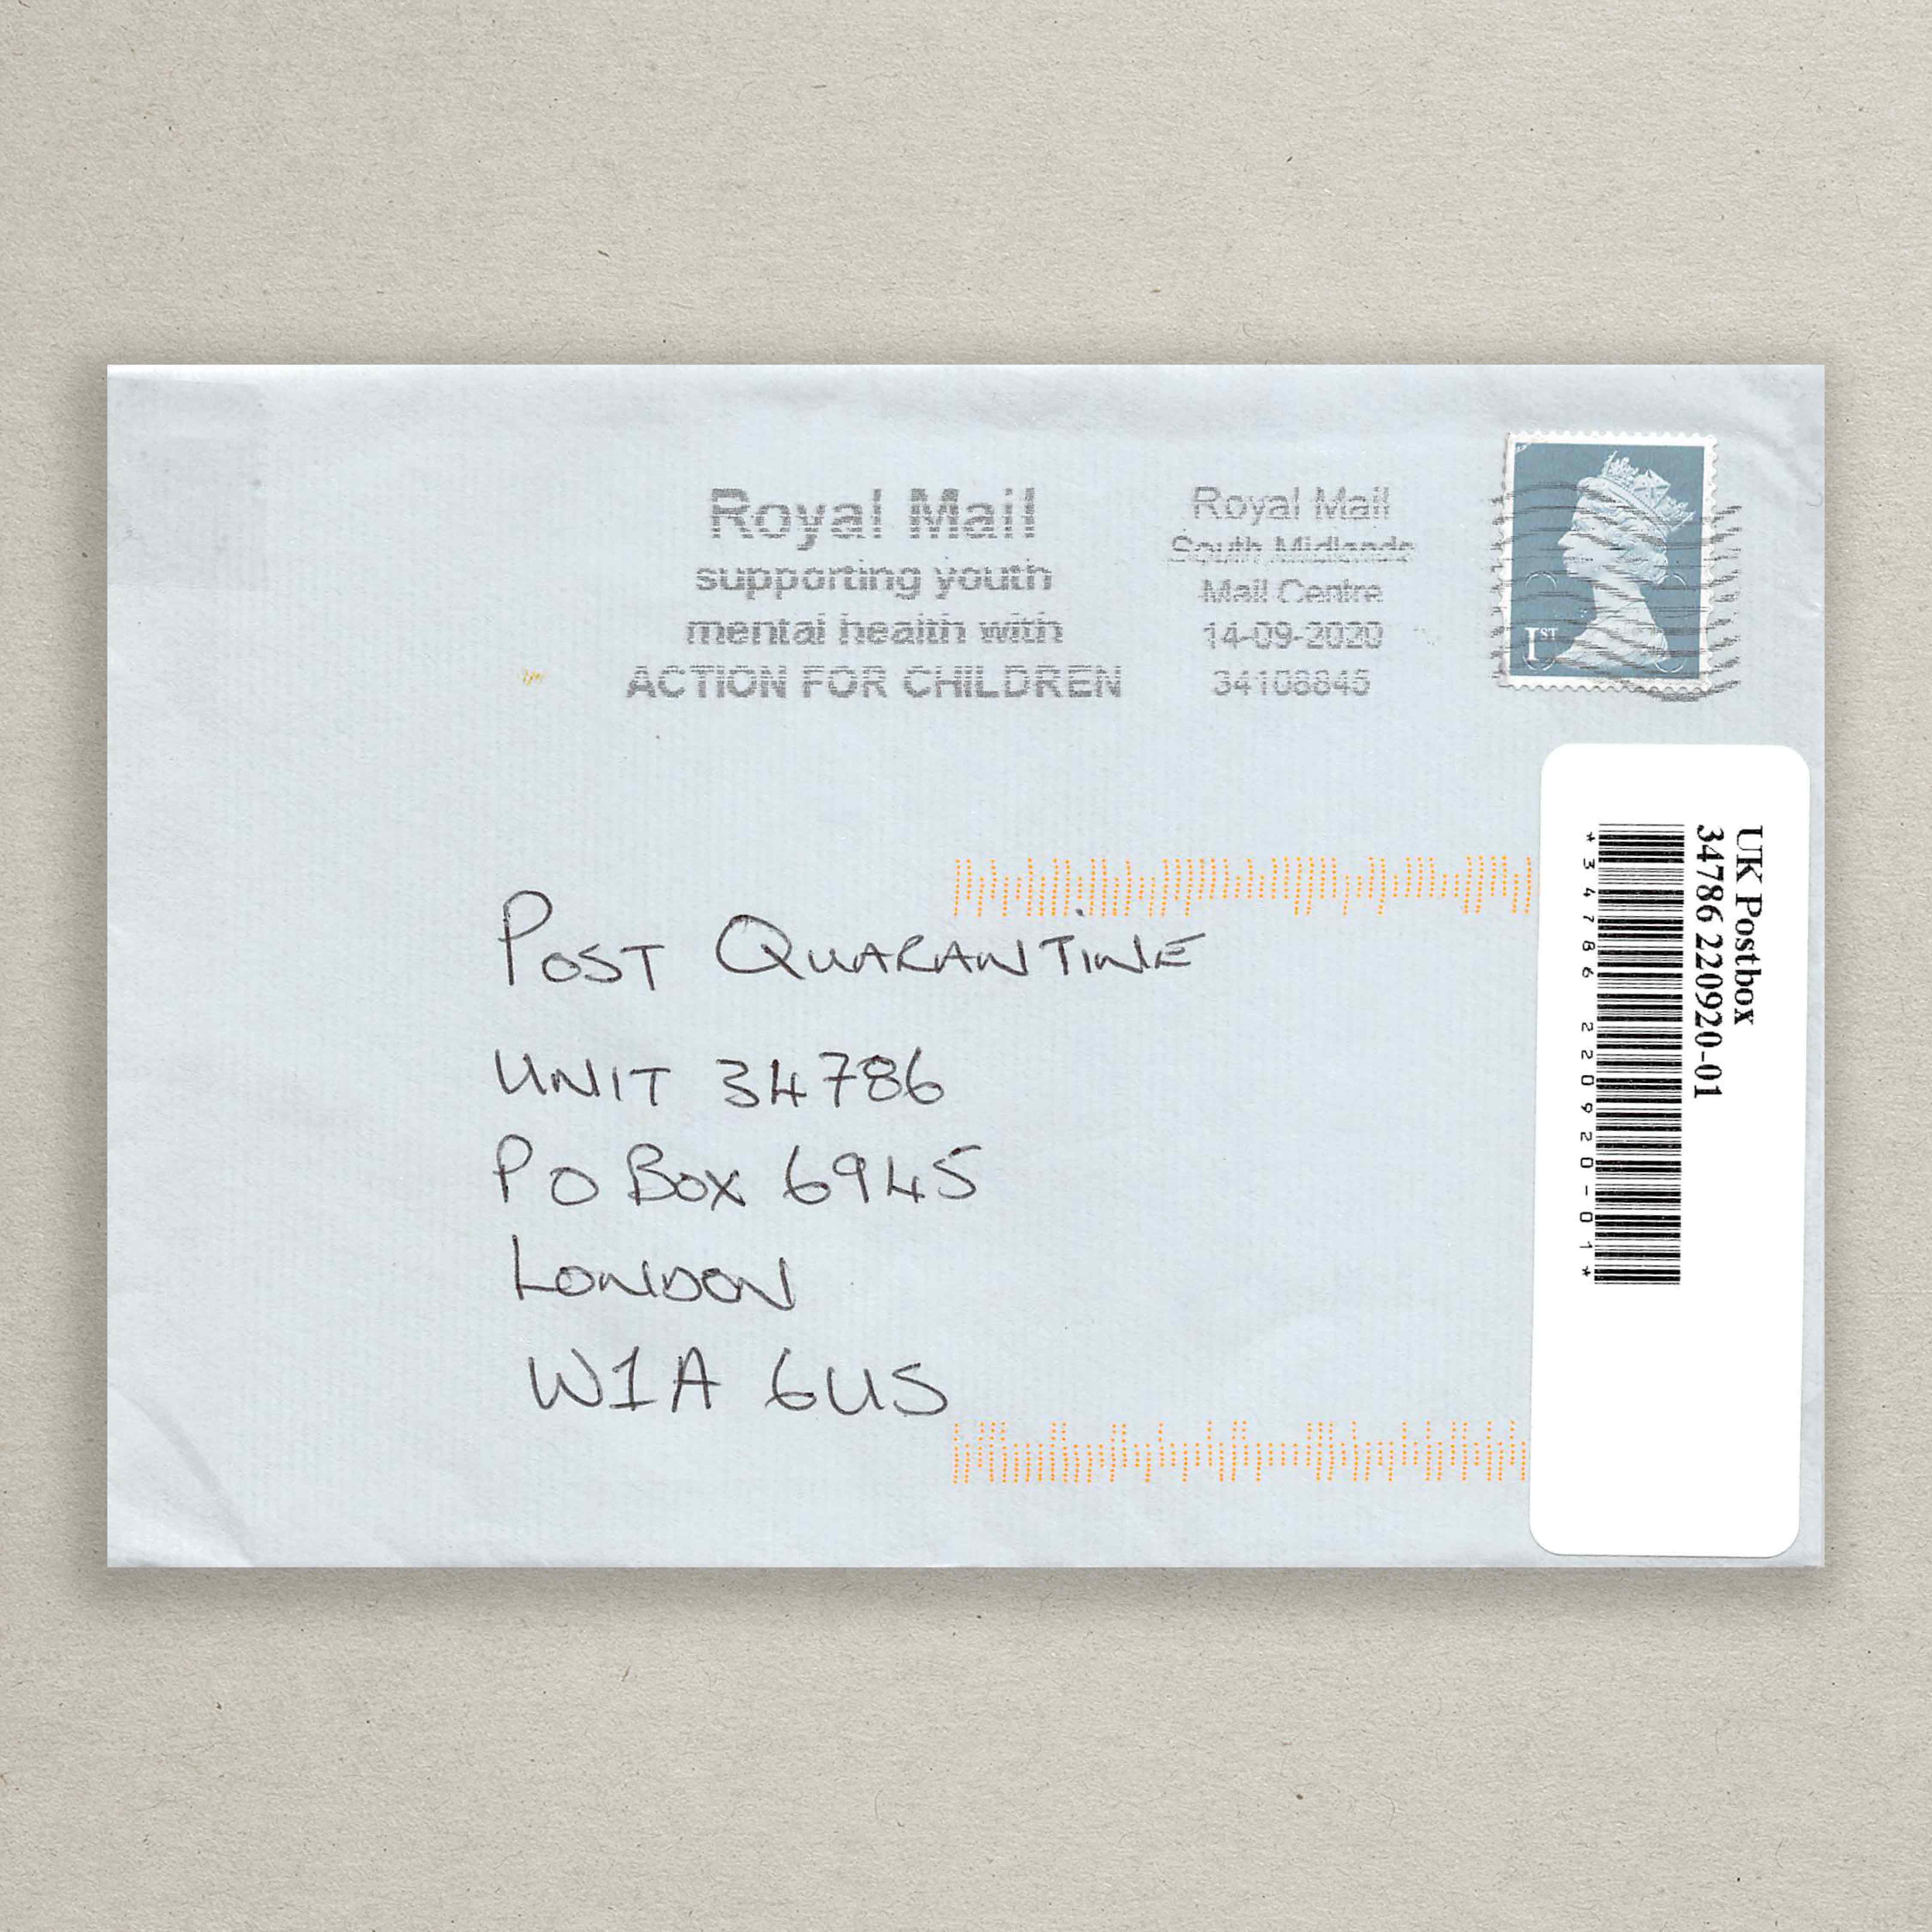 Royal Mail
supporting youth
mental health with
ACTION FOR CHILDREN
Royal Mail
South Midlands
Mail Centre
14-09-2020
34108845
1ST
POST QUARANTINE
UNIT 34786
PO BOX 6945
LONDON
W1A 6US
UK Postbox
34786 220920-01
*34786 220920-01*